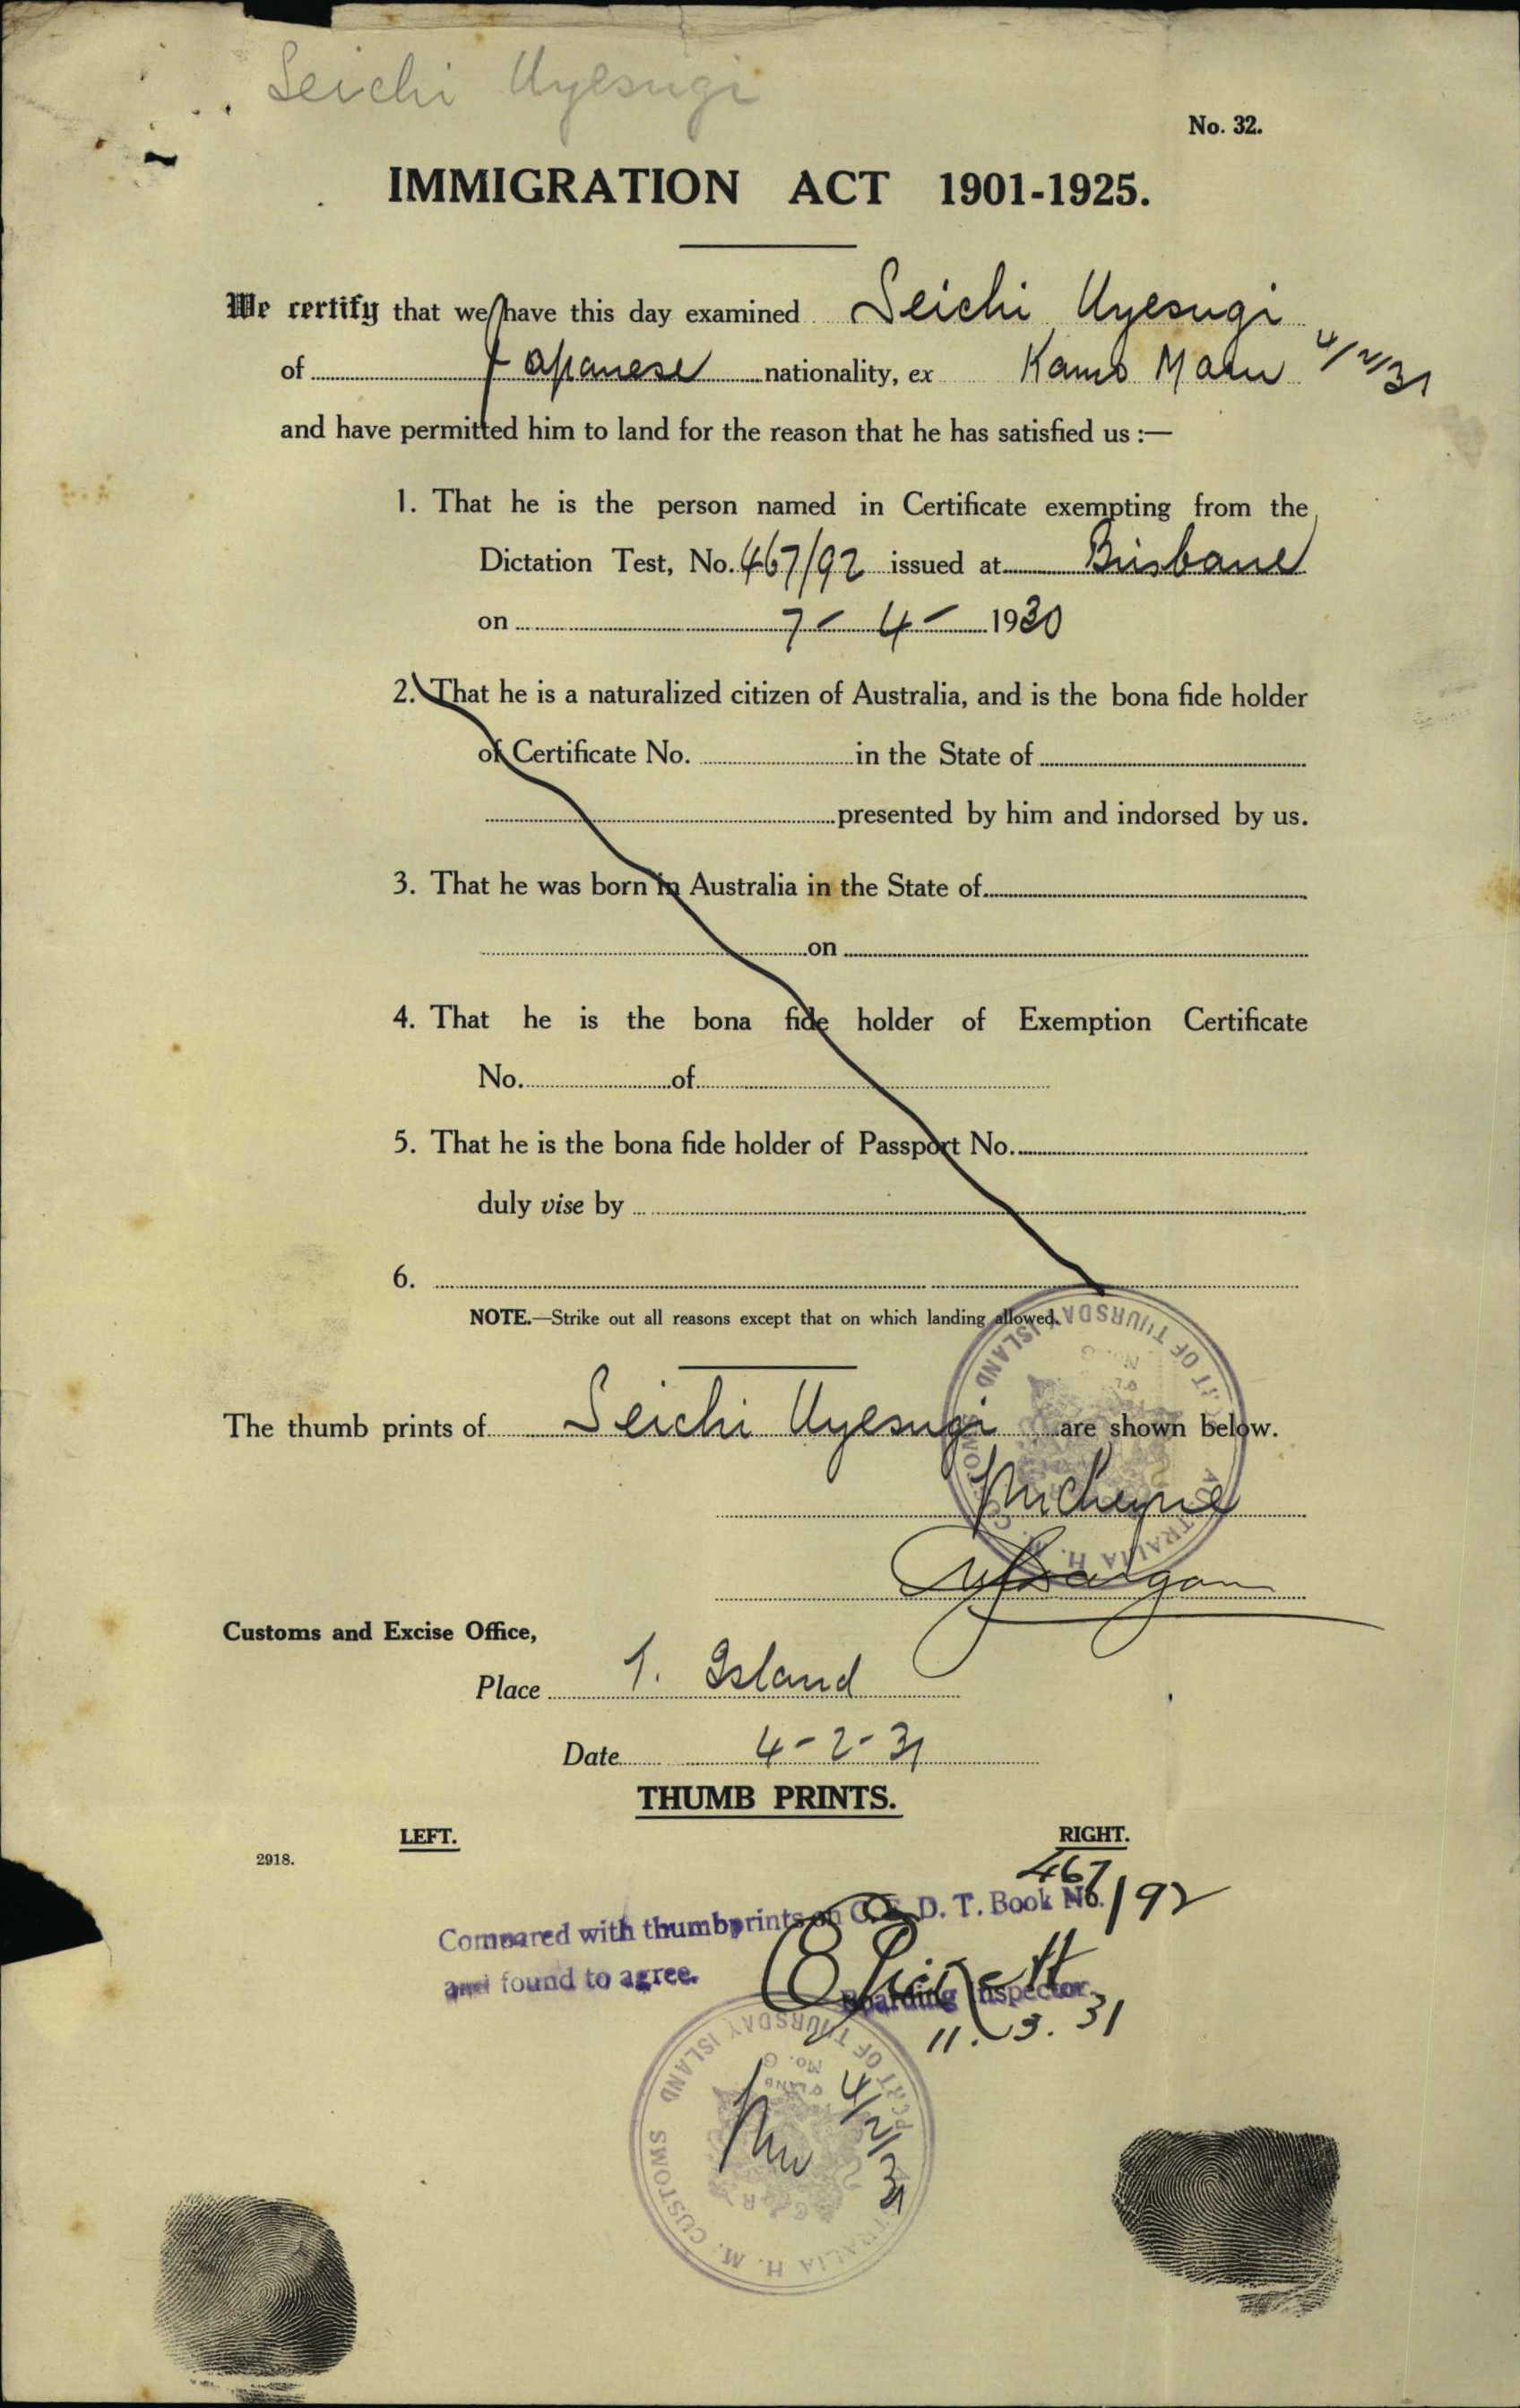 Seichi Uyesugi
No. 32.
IMMIGRATION ACT 1901-1925.
We certify that we have this day examined Seichi Uyesugi
of Japanese nationality, ex Kamo Maru 4/2/31
and have permitted him to land for the reason that he has satisfied us :—
1. That he is the person named in Certificate exempting from the
Dictation Test, No. 467/92 issued at Brisbane
on 7 - 4 - 1930
2. That he is a naturalized citizen of Australia, and is the bona fide holder
of Certificate No. in the State of
presented by him and indorsed by us.
3. That he was born in Australia in the State of
on
4. That he is the bona fide holder of Exemption Certificate
No. of
5. That he is the bona fide holder of Passport No.
duly vise by
6.
NOTE.—Strike out all reasons except that on which landing allowed.
The thumb prints of Seichi Uyesugi are shown below.
Customs and Excise Office,
Place T. Island
Date 4-2-31
THUMB PRINTS.
LEFT. RIGHT.
2918.
467/92
Compared with thumbprints on C. E. D. T. Book No.
and found to agree.
Boarding Inspector.
11.3.31
PORT OF THURSDAY ISLAND
AUSTRALIA H. M. CUSTOMS
4/2/31